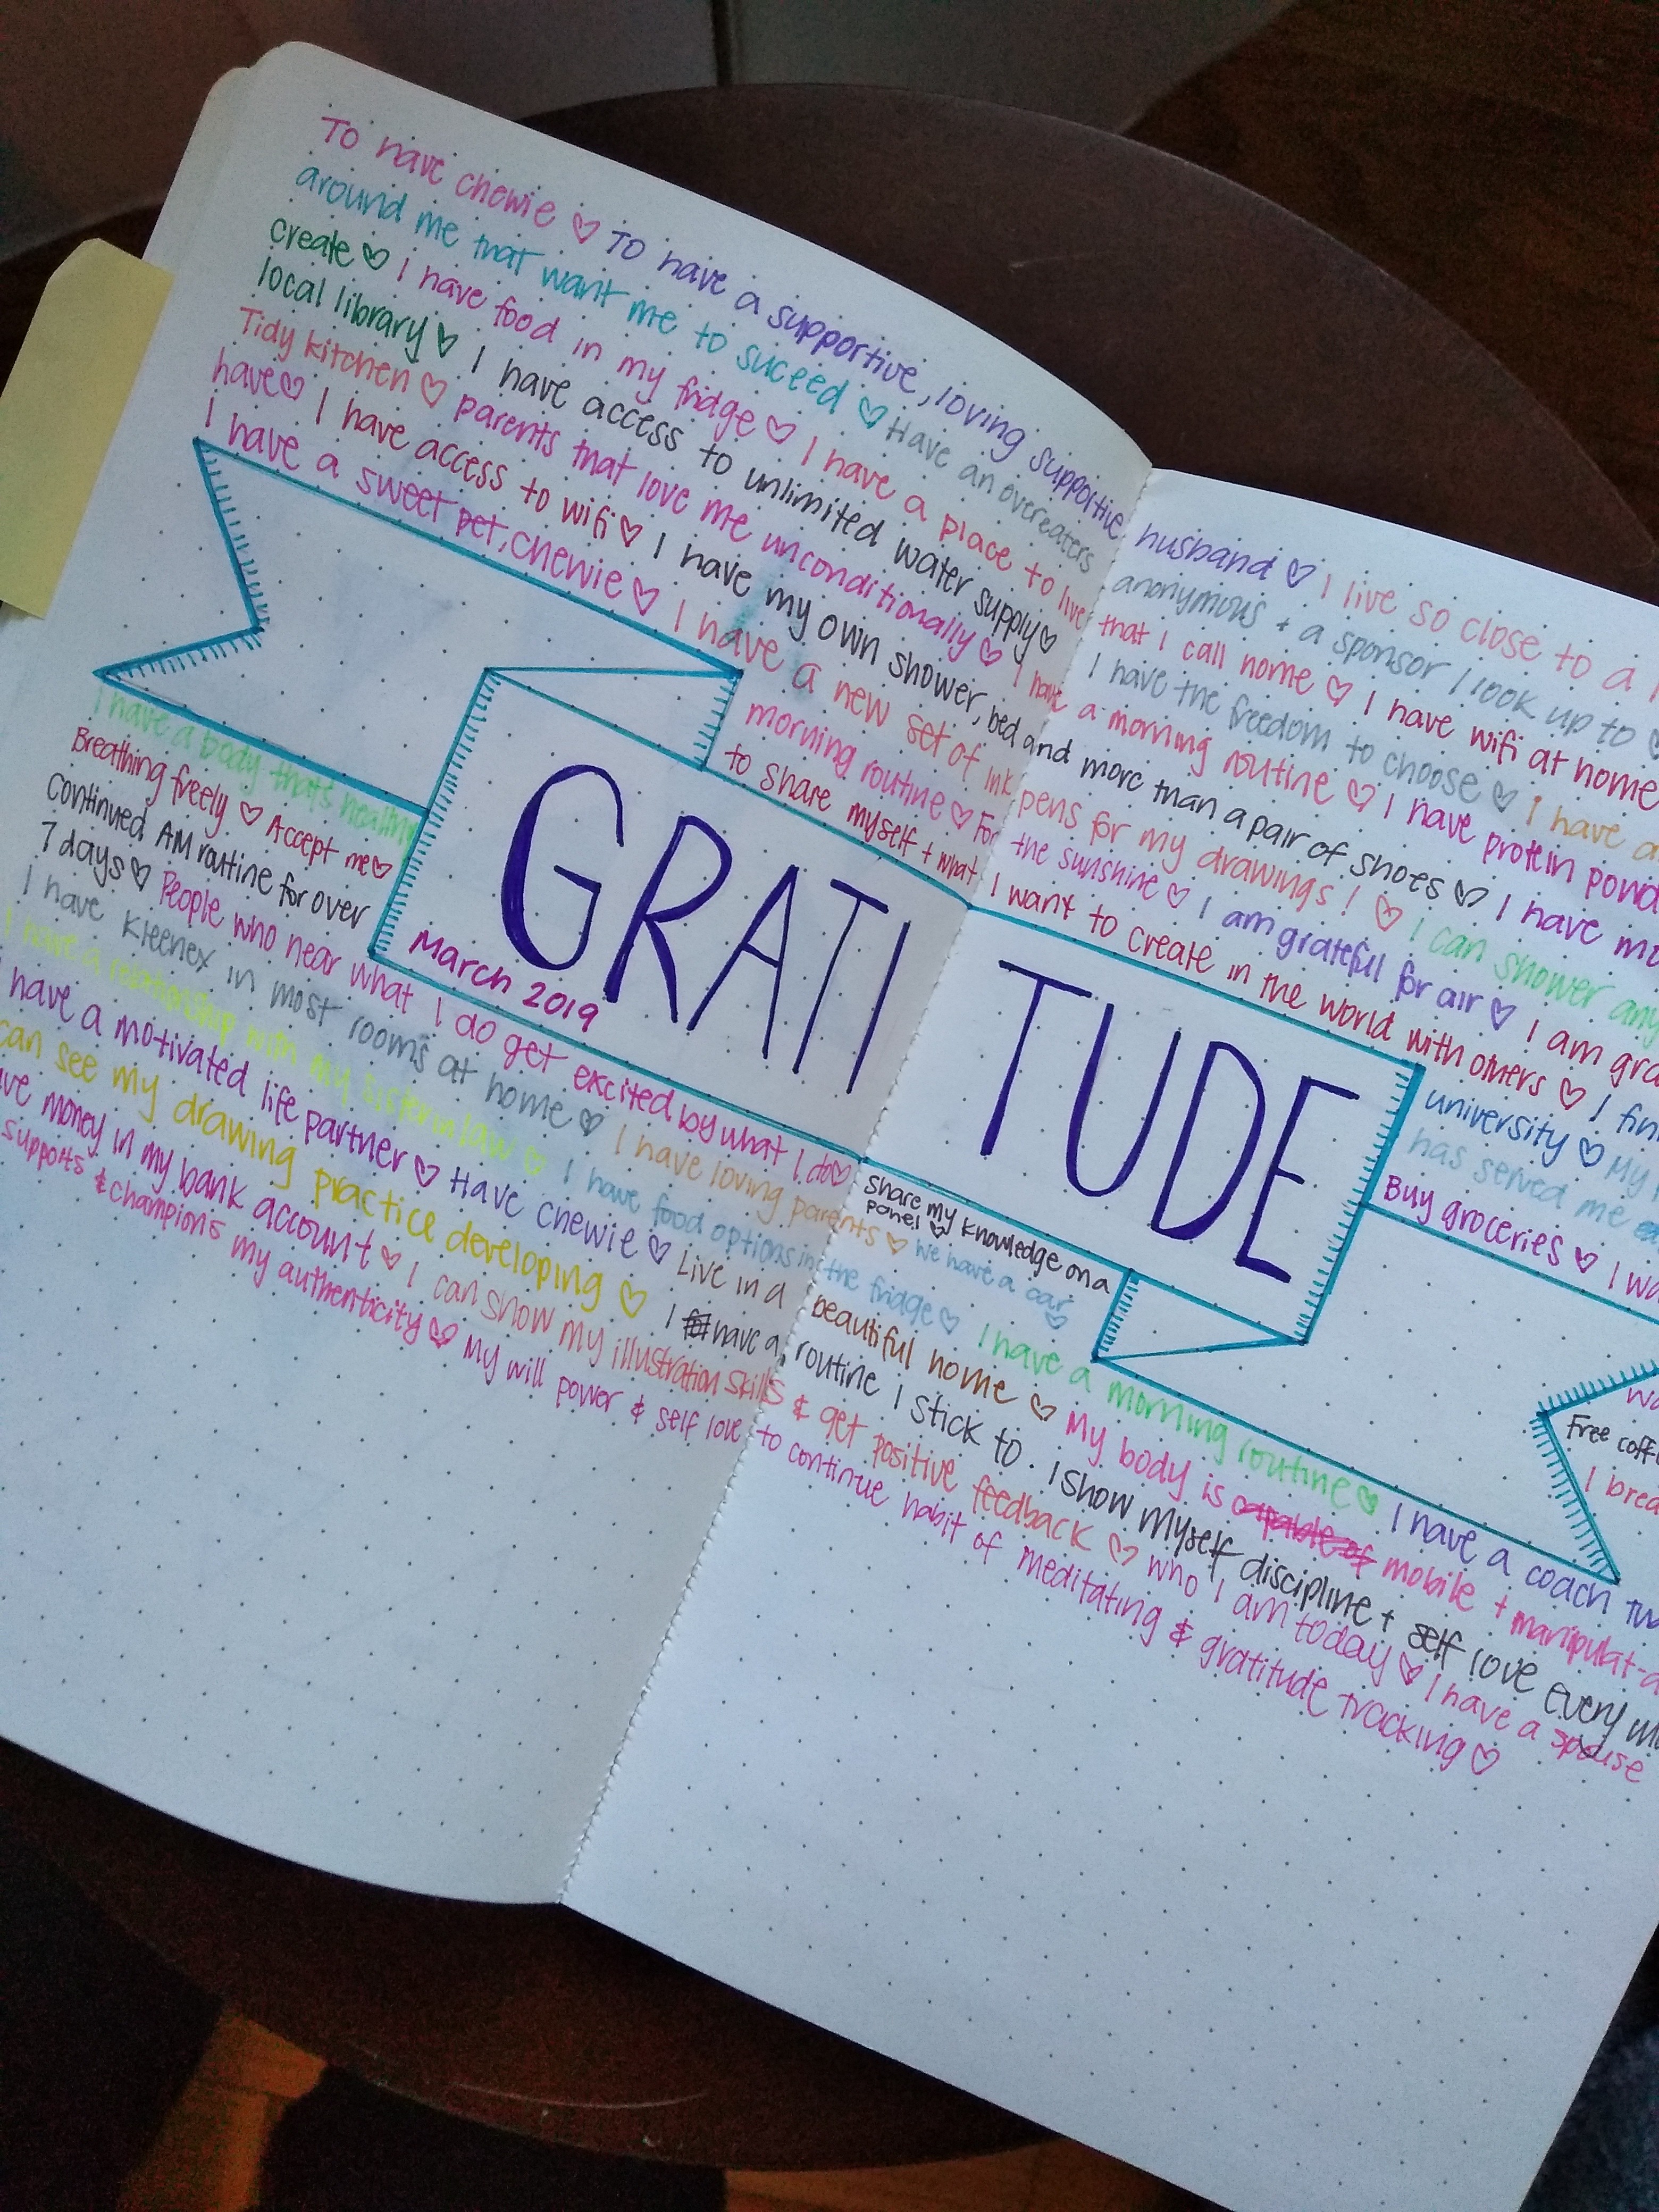 To have chewie ♡ To have a supportive, loving supportive husband ♡ I live so close to a
around me that want me to suceed ♡ Have an overeaters anonymous + a sponsor I look up to ♡
create ♡ I have food in my fridge ♡ I have a place to live that I call home ♡ I have wifi at home
local library ♡ I have access to unlimited water supply ♡ I have the freedom to choose ♡ I have
Tidy kitchen ♡ parents that love me unconditionally ♡ I have a morning routine ♡ I have protein powd
have ♡ I have access to wifi ♡ I have my own shower, bed and more than a pair of shoes ♡ I have
I have a sweet pet, chewie ♡ I have a new set of ink pens for my drawings! ♡ I can shower any
morning routine ♡ For the sunshine ♡ I am grateful for air ♡ I am gra
to share myself + what I want to create in the world with others ♡ I fin
GRATITUDE
March 2019
university ♡ My
has served me
Buy groceries ♡ I wa
I have a body that's healthy
Breathing freely ♡ Accept me ♡
Continued AM routine for over
7 days ♡ People who hear what I do get excited by what I do ♡
share my knowledge on a
panel ♡
I have Kleenex in most rooms at home ♡ I have loving parents ♡ we have a car ♡
Free coff
I brea
I have a relationship with my sister in law ♡ I have food options in the fridge ♡ I have a morning routine ♡ I have a coach
have a motivated life partner ♡ Have chewie ♡ Live in a beautiful home ♡ My body is capable of mobile + manipulat-
can see my drawing practice developing ♡ I have a routine I stick to. I show myself discipline + self love every
ve money in my bank account ♡ I can show my illustration skills & get positive feedback ♡ who I am today ♡ I have a spouse
supports & champions my authenticity ♡ My will power & self love to continue habit of meditating & gratitude tracking ♡